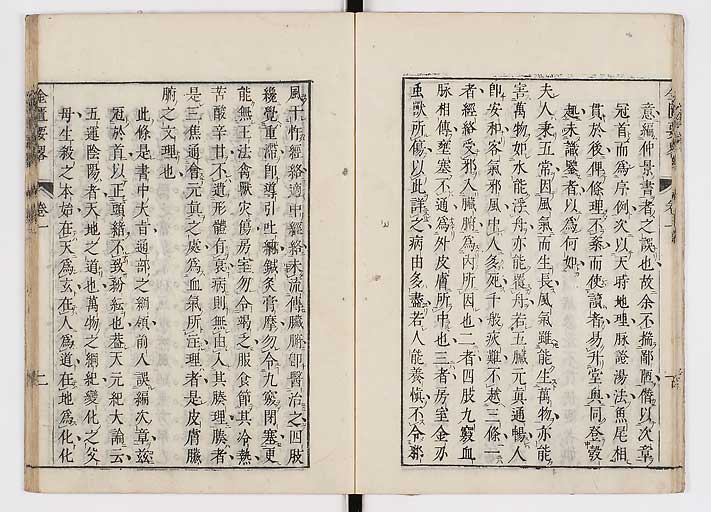 意編仲景書者之誤也故余不揣鄙陋僭以次章
冠首而為序例次以天時地理脉證湯法魚尾相
貫於後俾條理不紊而使讀者易升堂與同登彀
起未識鑒者以為何如
夫人秉五常因風氣而生長風氣雖能生萬物亦能
害萬物如水能浮舟亦能覆舟若五臓元真通暢人
即安和客氣邪風中人多死千般疢難不越三條一
者經絡受邪入臓腑為内所因也二者四肢九竅血
脉相傳壅塞不通為外皮膚所中也三者房室金刃
虫獣所傷以此詳之病由多盡若人能養慎不令邪
風干忤經絡適中經絡未流傳臓腑即醫治之四肢
纔覺重滞即導引吐納鍼灸膏摩勿令九竅閉塞更
能無王法禽獣灾傷房室勿令竭之服食節其冷熱
苦酸辛甘不遺形體有衰病則無由入其腠理腠者
是三焦通會元真之處為血氣所注理者是皮膚臓
腑之文理也
此條是書中大旨通部之綱領前人誤編次章茲
冠於首以正頭緒不致紛紜也葢天元紀大論云
五運陰陽者天地之道也萬物之綱紀變化之父
母生殺之本始在天為玄在人為道在地為化化
金匱要畧
卷一
二